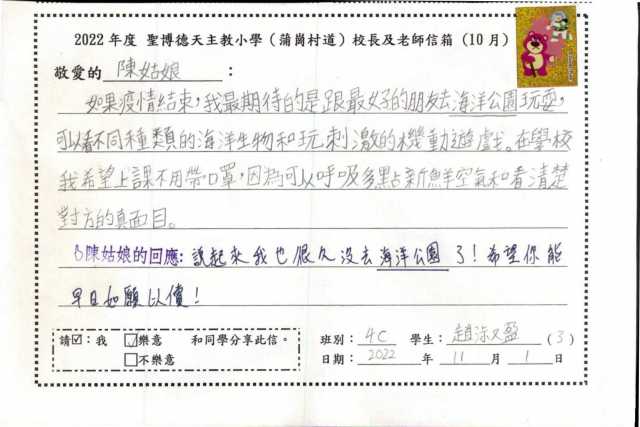 2022 年度 聖博德天主教小學（蒲崗村道）校長及老師信箱（10 月）
敬愛的 陳姑娘 ：
如果疫情結束，我最期待的是跟最好的朋友去海洋公園玩耍，
可以看不同種類的海洋生物和玩刺激的機動遊戲。在學校
我希望上課不用帶口罩，因為可以呼吸多點新鮮空氣和看清楚
對方的真面目。
陳姑娘的回應: 說起來我也很久沒去海洋公園了！希望你能
早日如願以償！
請☑：我 ☑樂意 和同學分享此信。
□不樂意
班別：4C 學生：趙 盈 (3)
日期：2022 年 11 月 1 日